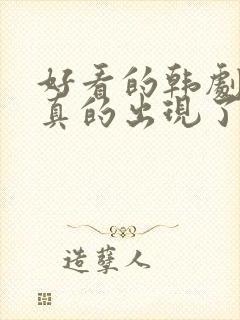 好看的韩劇
真的出現了
造孽人